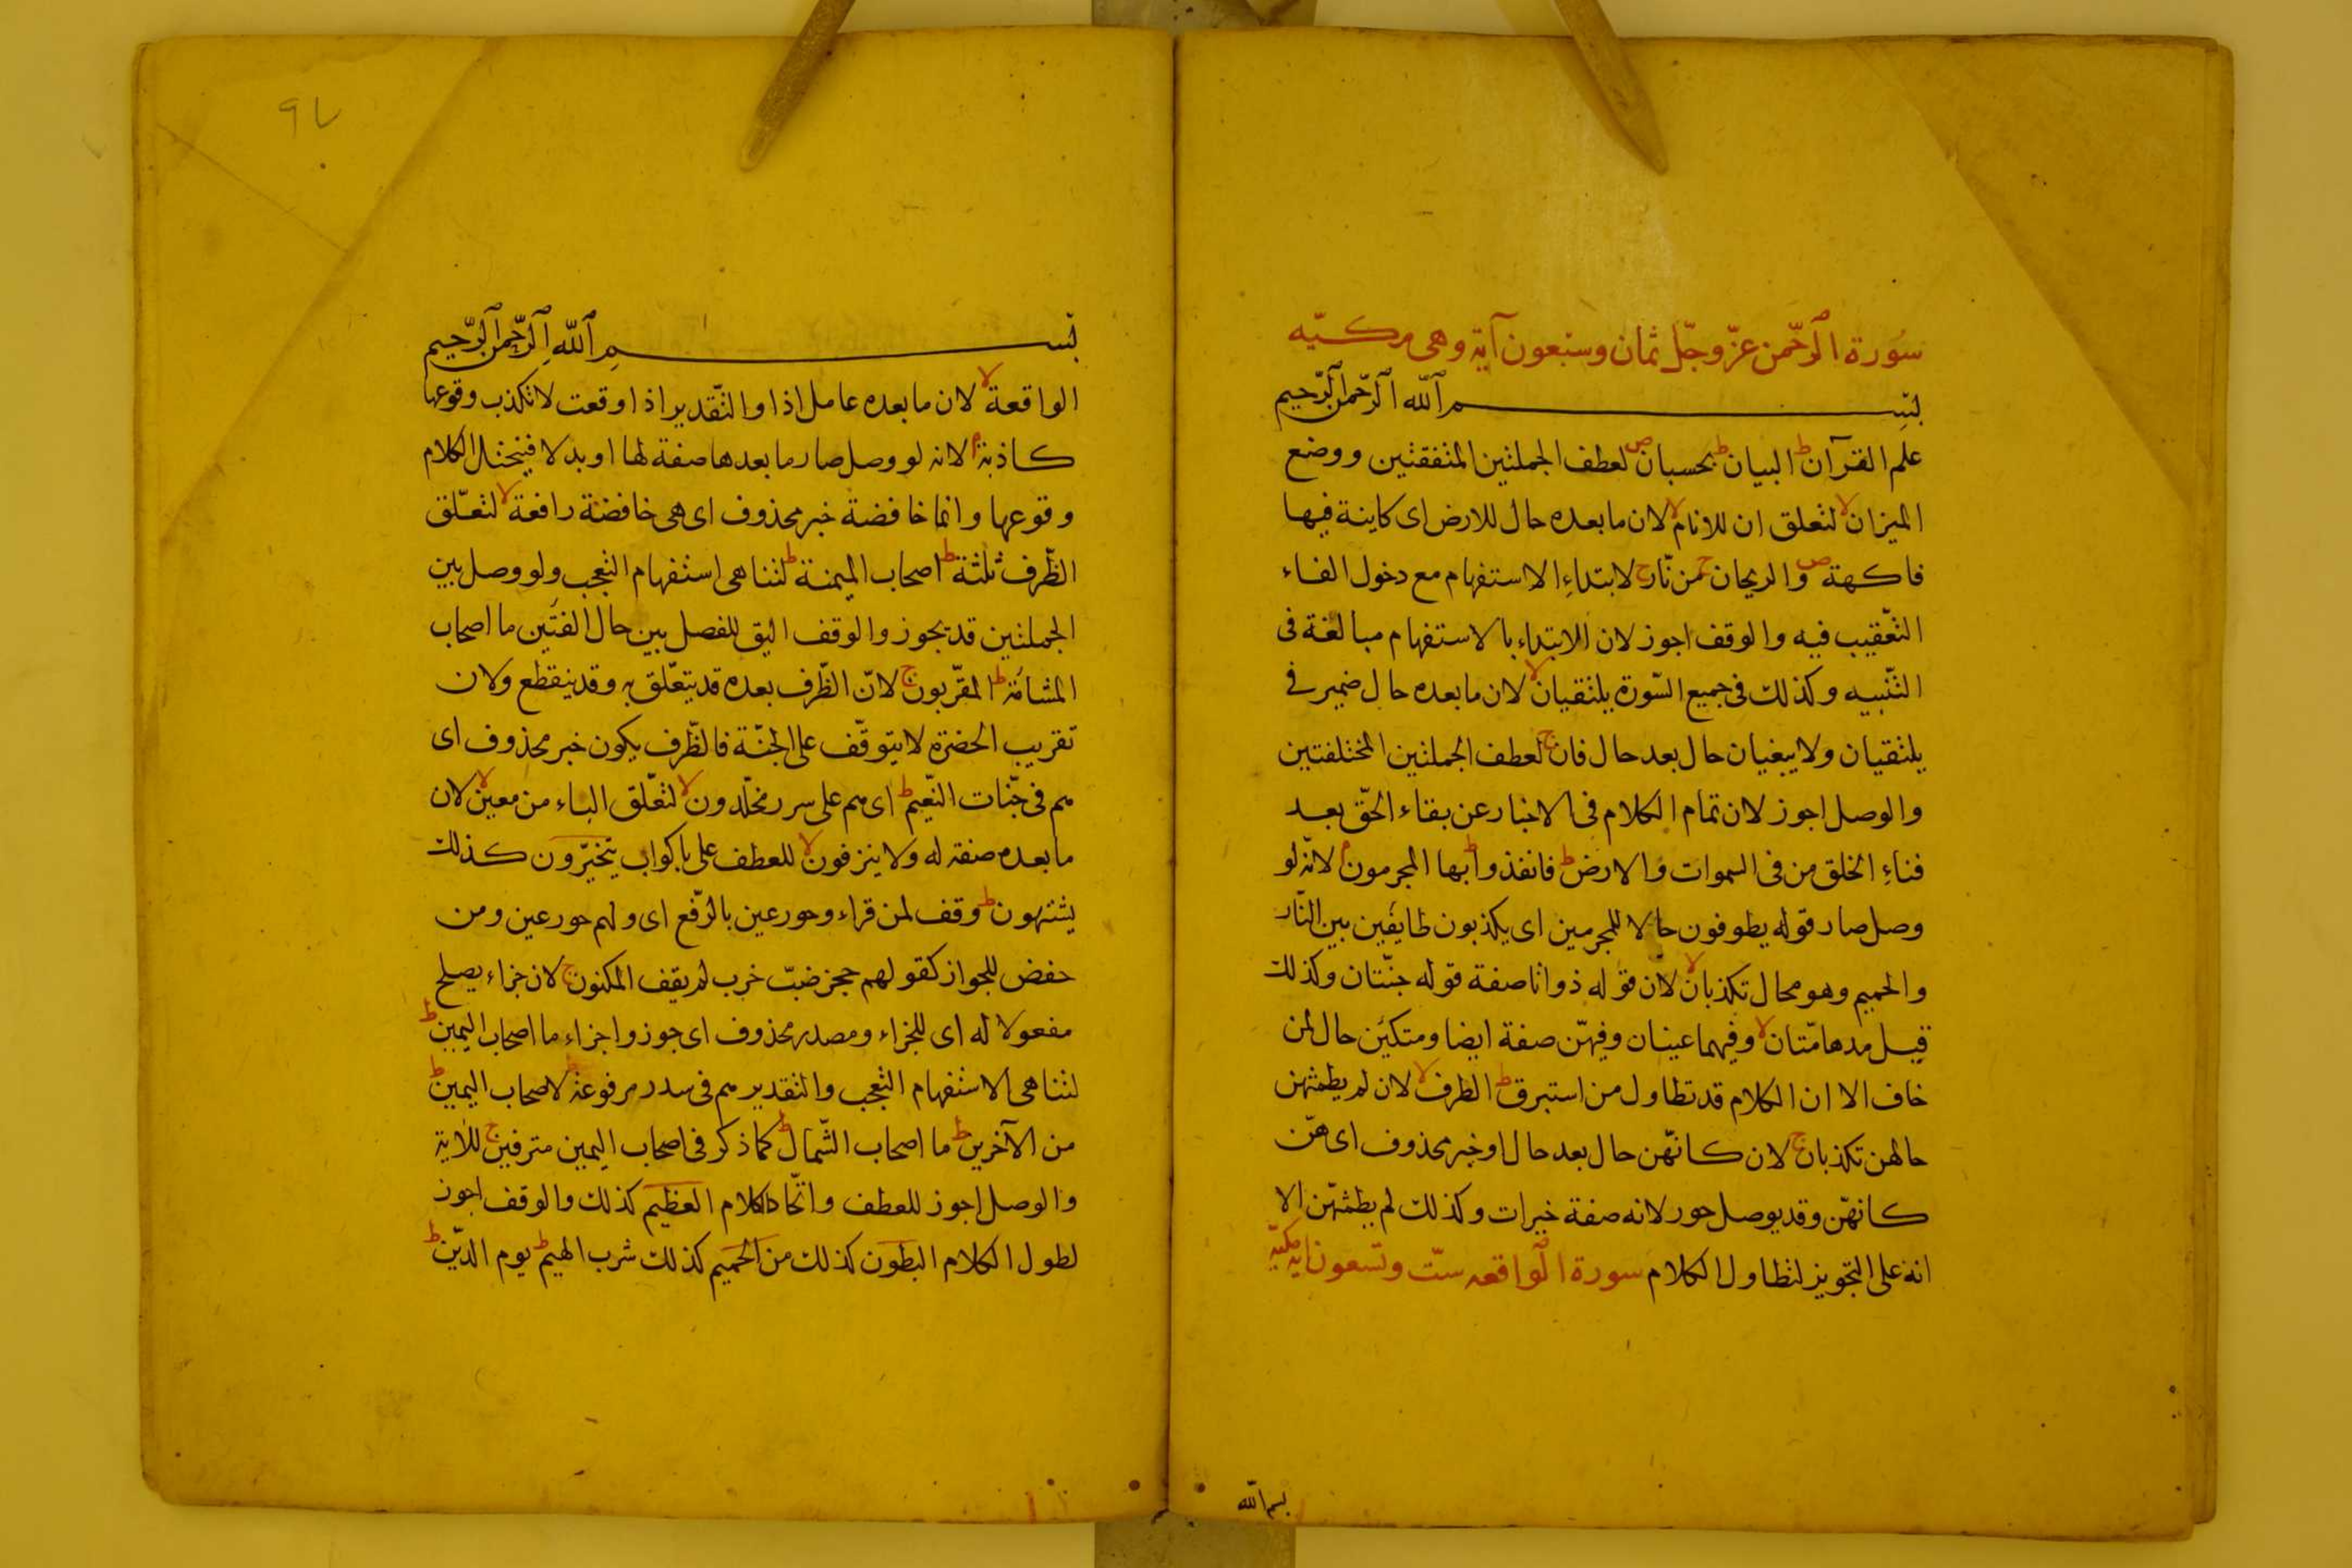 سورة الرحمن عز وجل ثمان وسبعون آية وهى مكيه
بسم الله الرحمن الرحيم
علم القرآن ط البيان ط بحسبان ص لعطف الجملتين المتفقتين ووضع
الميزان لا لتعلق ان للانام لا لان ما بعده حال للارض اى كاينة فيها
فاكهة ص والريحان ج من نار ج لابتداء الاستفهام مع دخول الفاء
التعقيب فيه والوقف اجوز لان الابتداء بالاستفهام مبالغة فى
التنبيه وكذلك فى جميع السورة يلتقيان لا لان ما بعده حال ضمير فى
يلتقيان ولا يبغيان حال بعد حال فان ج لعطف الجملتين المختلفتين
والوصل اجوز لان تمام الكلام فى الاخبار عن بقاء الحق بعد
فناء الخلق من فى السموات والارض ط فانفذوا ط بها المجرمون م لانه لو
وصل صار قوله يطوفون حالا للمجرمين اى يكذبون طايفين بين النار
والحميم وهو محال تكذبان لا لان قوله ذواتا صفة قوله جنتان وكذلك
قيل مدهامتان لا وفيهما عينان وفيهن صفة ايضا ومتكئين حال لمن
خاف الا ان الكلام قد تطاول من استبرق ط الطرف لا لان لم يطمثهن
حالهن تكذبان ج لان كانهن حال بعد حال او خبر محذوف اى هن
كانهن وقد يوصل حور لانه صفة خيرات وكذلك لم يطمثهن الا
انه على التجويز لتطاول الكلام سورة الواقعه ست وتسعون ايه مكيه
بسم الله
٩٧
بسم الله الرحمن الرحيم
الواقعة لا لان ما بعده عامل اذا والتقدير اذا وقعت لا تكذب وقوعها
كاذبة م لانه لو وصل صار ما بعدها صفة لها او بدلا فيختل الكلام
وقوعها وانما خافضة خبر محذوف اى هى خافضة رافعة لا لتعلق
الظرف ثلثة ط اصحاب الميمنة ط لتناهى استفهام التعجب ولو وصل بين
الجملتين قد يجوز والوقف اليق للفصل بين حال الفئتين ما اصحاب
المشامة ط المقربون ج لان الظرف بعده قد يتعلق به وقد ينقطع ولان
تقريب الحضرة لا يتوقف على الجنة فالظرف يكون خبر محذوف اى
هم فى جنات النعيم ط اى هم على سرر مخلدون لا لتعلق الباء من معين لا لان
ما بعده صفته له ولا ينزفون لا للعطف على باكواب يتخيرون كذلك
يشتهون ط وقف لمن قراء وحور عين بالرفع اى ولهم حور عين ومن
خفض للجواز كقولهم حجر ضب خرب لم يقف المكنون ج لان جزاء يصلح
مفعولا له اى للجزاء ومصدر محذوف اى جوزوا جزاء ما اصحاب اليمين ط
لتناهى الاستفهام التعجب والتقدير هم فى سدر مرفوعة ط لاصحاب اليمين ط
من الآخرين ط ما اصحاب الشمال ط كما ذكر فى اصحاب اليمين مترفين ج للاية
والوصل اجوز للعطف واتحاد الكلام العظيم كذلك والوقف اجوز
لطول الكلام البطون كذلك من الحميم كذلك شرب الهيم ط يوم الدين ط